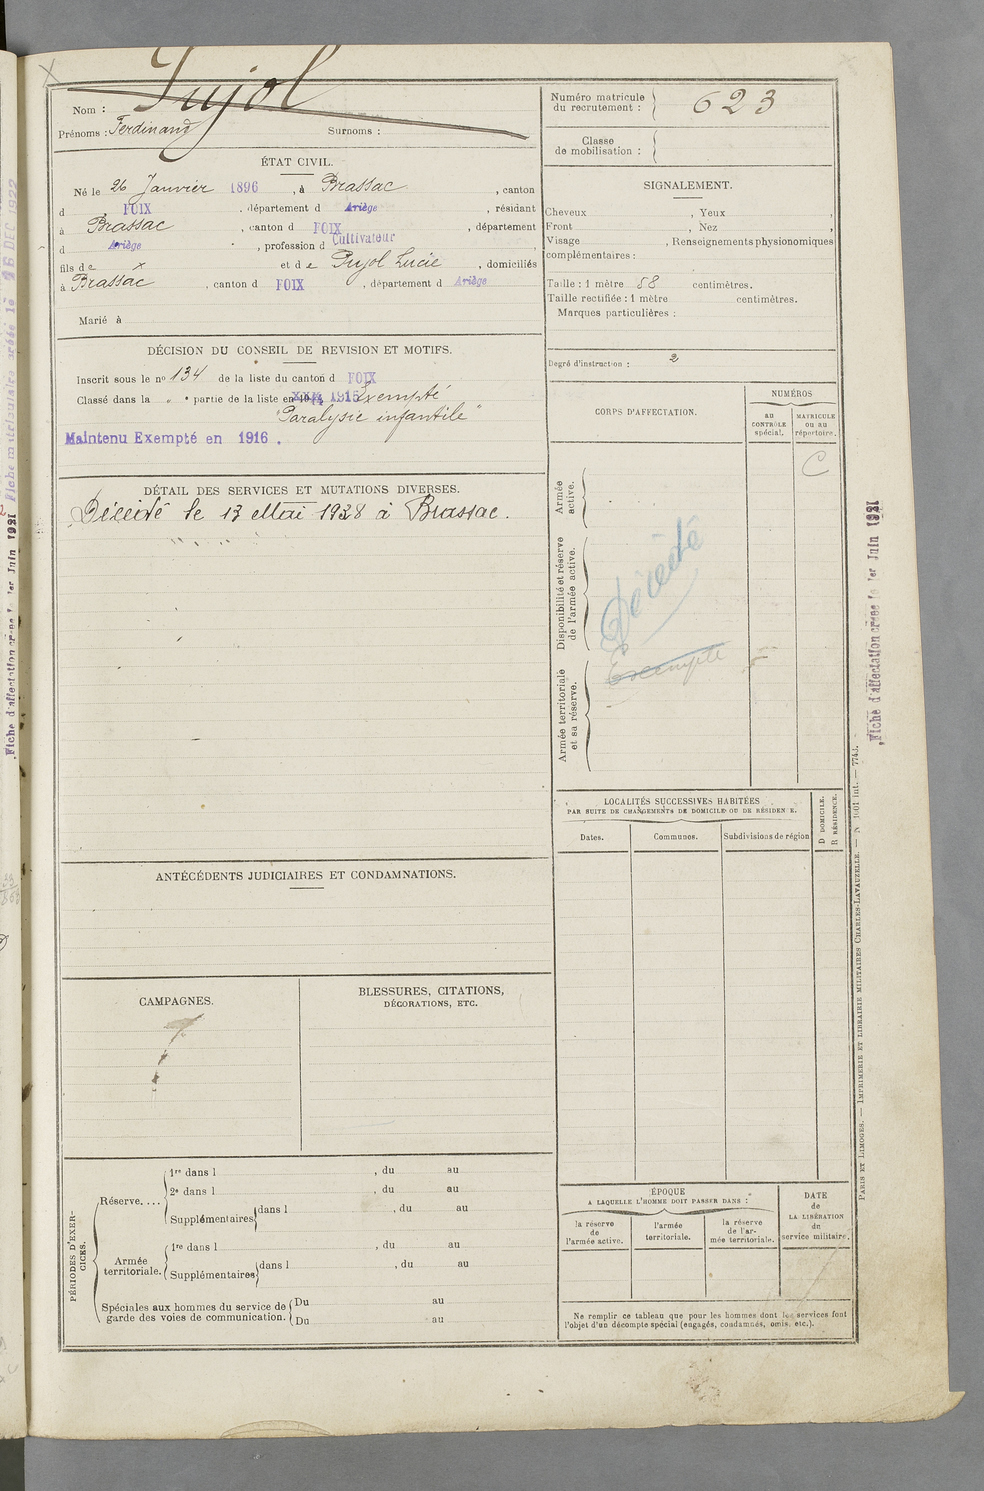 Pujol
Nom :
Prénoms : Ferdinand Surnoms :
Numéro matricule du recrutement : 623
Classe de mobilisation :
ÉTAT CIVIL.
Né le 26 Janvier 1896, à Brassac, canton
d FOIX, département d Ariège, résidant
à Brassac, canton d FOIX, département
d Ariège, profession d Cultivateur,
fils de x et de Pujol Lucie, domiciliés
à Brassac, canton d FOIX, département d Ariège
Marié à
SIGNALEMENT.
Cheveux , Yeux ,
Front , Nez ,
Visage , Renseignements physionomiques
complémentaires :
Taille : 1 mètre 58 centimètres.
Taille rectifiée : 1 mètre centimètres.
Marques particulières :
Degré d'instruction : 2
DÉCISION DU CONSEIL DE REVISION ET MOTIFS.
Inscrit sous le nº 134 de la liste du canton d FOIX
Classé dans la " partie de la liste en 1915 Exempté
"Paralysie infantile"
Maintenu Exempté en 1916.
DÉTAIL DES SERVICES ET MUTATIONS DIVERSES.
Décédé le 13 Mai 1938 à Brassac.
CORPS D'AFFECTATION.
NUMÉROS
au CONTRÔLE spécial.
MATRICULE ou au répertoire.
C
Armée active.
Disponibilité et réserve de l'armée active.
Armée territoriale et sa réserve.
Décédé
Exempté
LOCALITÉS SUCCESSIVES HABITÉES
PAR SUITE DE CHANGEMENTS DE DOMICILE OU DE RÉSIDENCE.
Dates.
Communes.
Subdivisions de région
D DOMICILE.
R RÉSIDENCE.
ANTÉCÉDENTS JUDICIAIRES ET CONDAMNATIONS.
CAMPAGNES.
BLESSURES, CITATIONS,
DÉCORATIONS, ETC.
PÉRIODES D'EXERCICES.
Réserve....
1re dans l , du au
2e dans l , du au
Supplémentaires dans l , du au
Armée territoriale.
1re dans l , du au
Supplémentaires dans l , du au
Spéciales aux hommes du service de garde des voies de communication.
Du au
Du au
ÉPOQUE
A LAQUELLE L'HOMME DOIT PASSER DANS :
la réserve de l'armée active.
l'armée territoriale.
la réserve de l'armée territoriale.
DATE de LA LIBÉRATION du service militaire.
Ne remplir ce tableau que pour les hommes dont les services font
l'objet d'un décompte spécial (engagés, condamnés, omis, etc.).
PARIS ET LIMOGES. — IMPRIMERIE ET LIBRAIRIE MILITAIRES CHARLES-LAVAUZELLE. — N° 1001 int. — 774J.
Fiche d'affectation créée le 1er Juin 1921
Fiche d'affectation créée le 1er Juin 1921
Fiche matriculaire créée le 16 DEC 1922